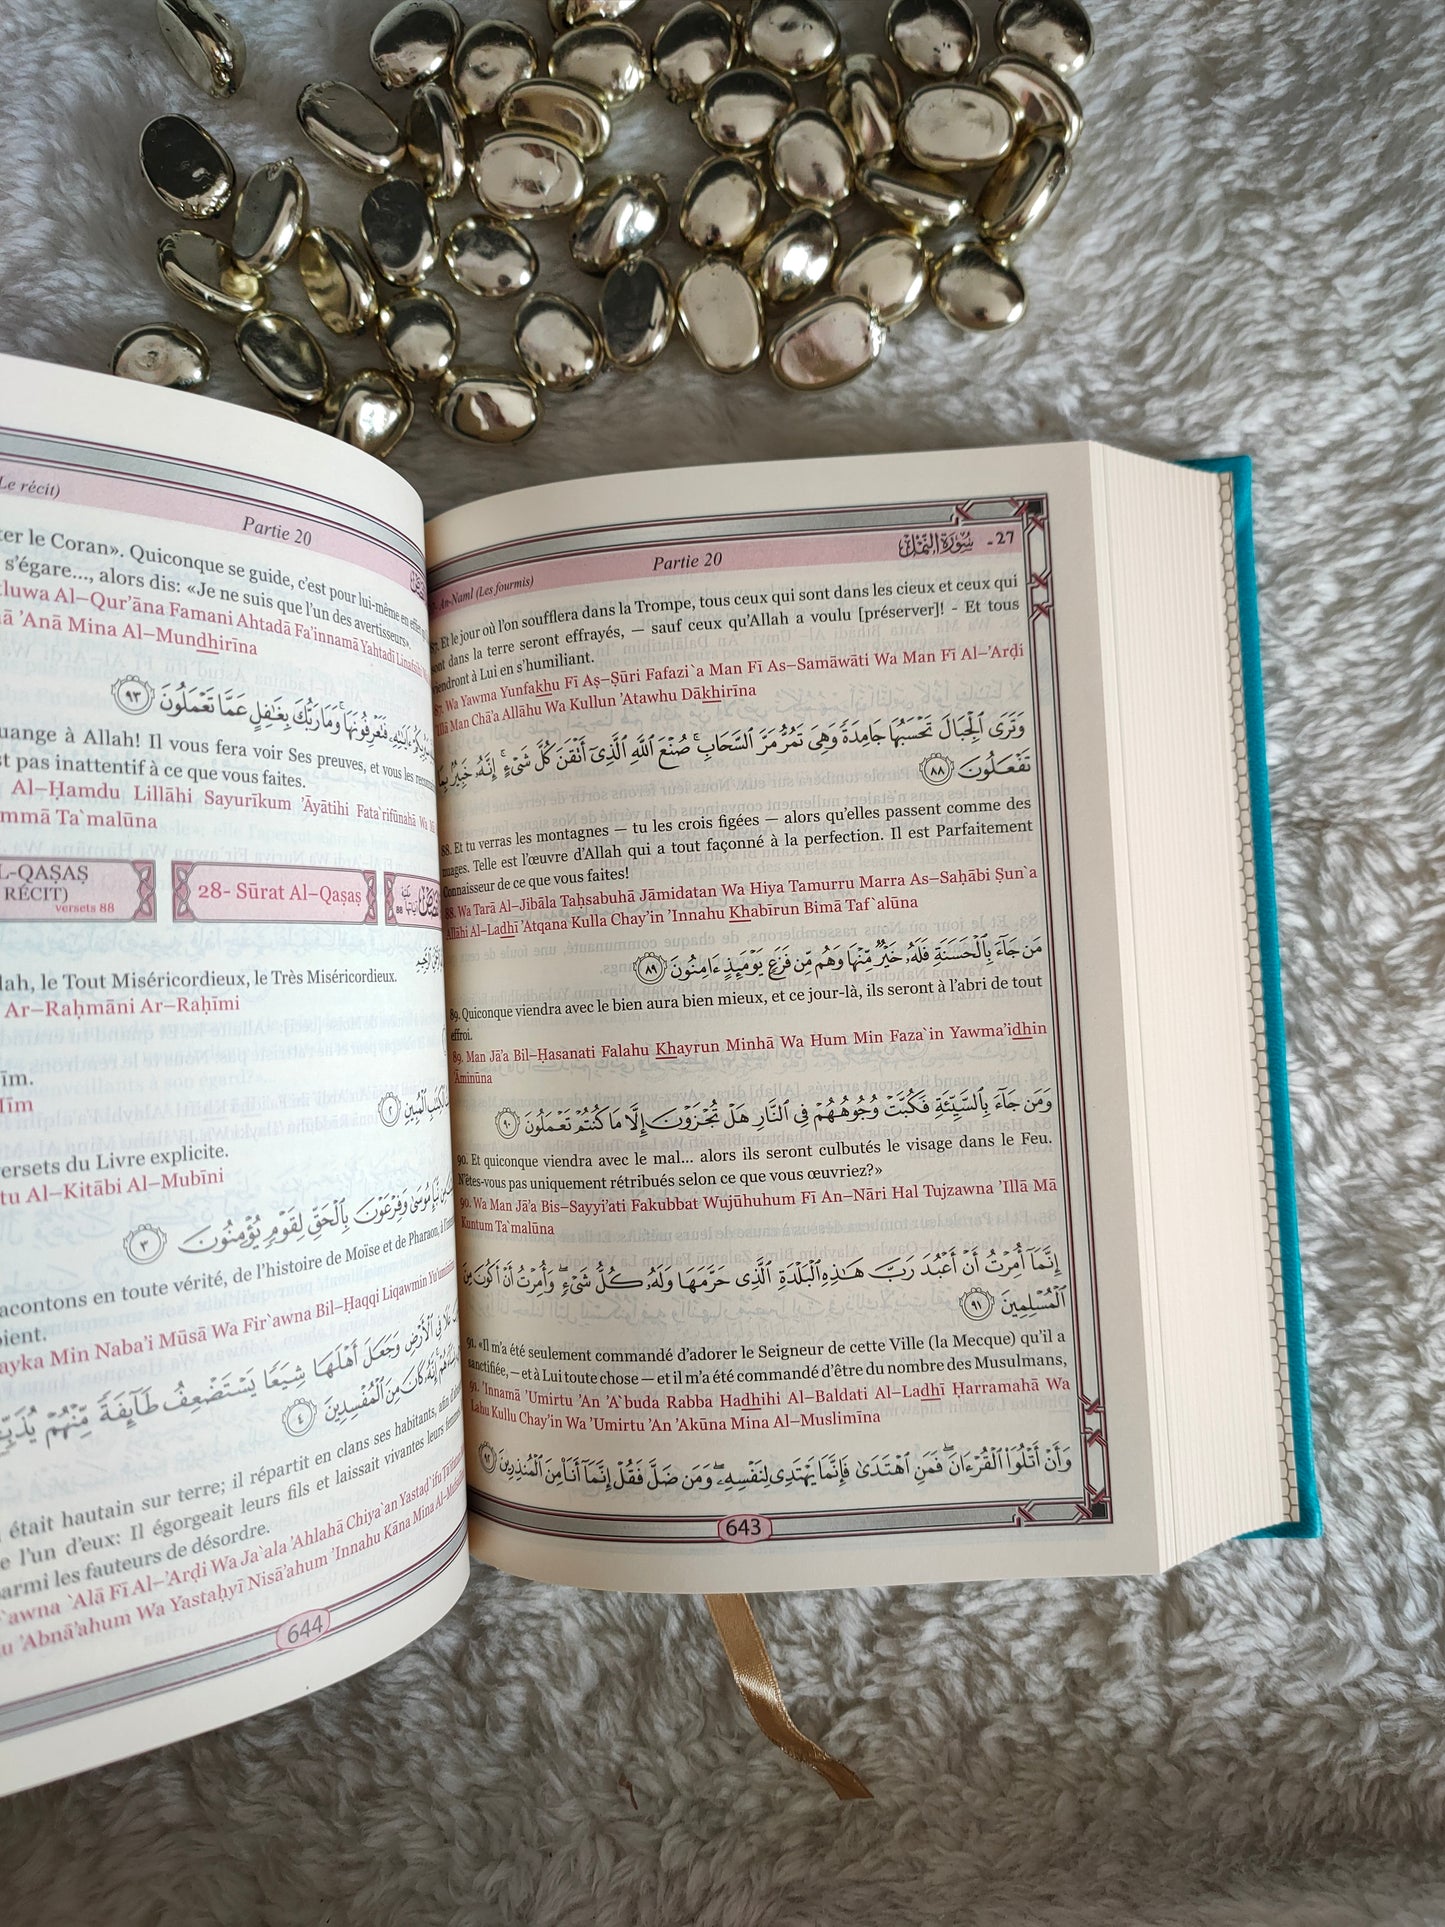 Partie 20
سُورَةُ النَّمْل - 27
An-Naml (Les fourmis)
87. Et le jour où l'on soufflera dans la Trompe, tous ceux qui sont dans les cieux et ceux qui
sont dans la terre seront effrayés, — sauf ceux qu'Allah a voulu [préserver]! - Et tous
viendront à Lui en s'humiliant.
87. Wa Yawma Yunfakhu Fī Aṣ–Ṣūri Fafazi`a Man Fī As–Samāwāti Wa Man Fī Al–'Arḍi
'Illā Man Chā'a Allāhu Wa Kullun 'Atawhu Dākhirīna
وَتَرَى ٱلۡجِبَالَ تَحۡسَبُهَا جَامِدَةً وَهِيَ تَمُرُّ مَرَّ ٱلسَّحَابِۚ صُنۡعَ ٱللَّهِ ٱلَّذِيٓ أَتۡقَنَ كُلَّ شَيۡءٍۚ إِنَّهُۥ خَبِيرُۢ بِمَا
تَفۡعَلُونَ ٨٨
88. Et tu verras les montagnes — tu les crois figées — alors qu'elles passent comme des
nuages. Telle est l'œuvre d'Allah qui a tout façonné à la perfection. Il est Parfaitement
Connaisseur de ce que vous faites!
88. Wa Tarā Al–Jibāla Taḥsabuhā Jāmidatan Wa Hiya Tamurru Marra As–Saḥābi Ṣun`a
Allāhi Al–Ladhī 'Atqana Kulla Chay'in 'Innahu Khabīrun Bimā Taf`alūna
مَن جَآءَ بِٱلۡحَسَنَةِ فَلَهُۥ خَيۡرٞ مِّنۡهَا وَهُم مِّن فَزَعٖ يَوۡمَئِذٍ ءَامِنُونَ ٨٩
89. Quiconque viendra avec le bien aura bien mieux, et ce jour-là, ils seront à l'abri de tout
effroi.
89. Man Jā'a Bil–Ḥasanati Falahu Khayrun Minhā Wa Hum Min Faza`in Yawma'idhin
'Āminūna
وَمَن جَآءَ بِٱلسَّيِّئَةِ فَكُبَّتۡ وُجُوهُهُمۡ فِي ٱلنَّارِ هَلۡ تُجۡزَوۡنَ إِلَّا مَا كُنتُمۡ تَعۡمَلُونَ ٩٠
90. Et quiconque viendra avec le mal... alors ils seront culbutés le visage dans le Feu.
N'êtes-vous pas uniquement rétribués selon ce que vous œuvriez?»
90. Wa Man Jā'a Bis–Sayyi'ati Fakubbat Wujūhuhum Fī An–Nāri Hal Tujzawna 'Illā Mā
Kuntum Ta`malūna
إِنَّمَآ أُمِرۡتُ أَنۡ أَعۡبُدَ رَبَّ هَٰذِهِ ٱلۡبَلۡدَةِ ٱلَّذِي حَرَّمَهَا وَلَهُۥ كُلُّ شَيۡءٖۖ وَأُمِرۡتُ أَنۡ أَكُونَ مِنَ
ٱلۡمُسۡلِمِينَ ٩١
91. «Il m'a été seulement commandé d'adorer le Seigneur de cette Ville (la Mecque) qu'il a
sanctifiée, — et à Lui toute chose — et il m'a été commandé d'être du nombre des Musulmans,
91. 'Innamā 'Umirtu 'An 'A`buda Rabba Hadhihi Al–Baldati Al–Ladhī Ḥarramahā Wa
Lahu Kullu Chay'in Wa 'Umirtu 'An 'Akūna Mina Al–Muslimīna
وَأَنۡ أَتۡلُوَاْ ٱلۡقُرۡءَانَۖ فَمَنِ ٱهۡتَدَىٰ فَإِنَّمَا يَهۡتَدِي لِنَفۡسِهِۦۖ وَمَن ضَلَّ فَقُلۡ إِنَّمَآ أَنَا۠ مِنَ ٱلۡمُنذِرِينَ ٩٢
643
Le récit)
Partie 20
le Coran». Quiconque se guide, c'est pour lui-même en
s'égare..., alors dis: «Je ne suis que l'un des avertisseurs».
Al–Qur'āna Famani Ahtadā Fa'innamā Yahtadī
'Anā Mina Al–Mundhirīna
فَتَعۡرِفُونَهَاۚ وَمَا رَبُّكَ بِغَٰفِلٍ عَمَّا تَعۡمَلُونَ ٩٣
à Allah! Il vous fera voir Ses preuves, et vous les
pas inattentif à ce que vous faites.
Al–Ḥamdu Lillāhi Sayurīkum 'Āyātihi Fata`rifūnahā Wa
Ta`malūna
L-QAṢAṢ
RÉCIT)
versets 88
28- Sūrat Al–Qaṣaṣ
le Tout Miséricordieux, le Très Miséricordieux.
Ar–Raḥmāni Ar–Raḥīmi
ٱلۡمُبِينِ ٢
du Livre explicite.
Al–Kitābi Al–Mubīni
مُوسَىٰ وَفِرۡعَوۡنَ بِٱلۡحَقِّ لِقَوۡمٖ يُؤۡمِنُونَ ٣
en toute vérité, de l'histoire de Moïse et de Pharaon, à
Min Naba'i Mūsā Wa Fir`awna Bil–Ḥaqqi Liqawmin
عَلَا فِي ٱلۡأَرۡضِ وَجَعَلَ أَهۡلَهَا شِيَعٗا يَسۡتَضۡعِفُ طَآئِفَةٗ مِّنۡهُمۡ
إِنَّهُۥ كَانَ مِنَ ٱلۡمُفۡسِدِينَ ٤
était hautain sur terre; il répartit en clans ses habitants, afin
l'un d'eux: Il égorgeait leurs fils et laissait vivantes leurs
les fauteurs de désordre.
`Alā Fī Al–'Arḍi Wa Ja`ala 'Ahlahā Chiya`an Yastaḍ`ifu
'Abnā'ahum Wa Yastaḥyī Nisā'ahum 'Innahu Kāna Mina
644